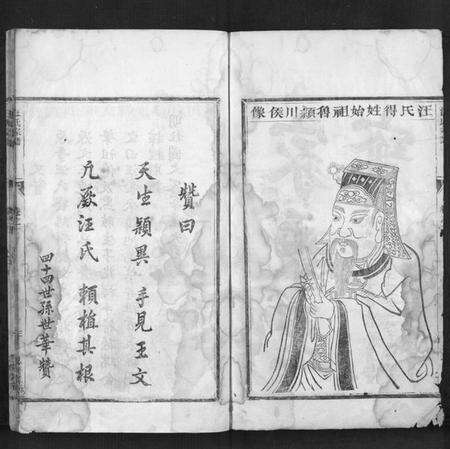 汪氏得姓始祖魯潁川侯像
贊曰
天生穎異 手見王文
凡厥汪氏 賴植其根
四十四世孫世華贊